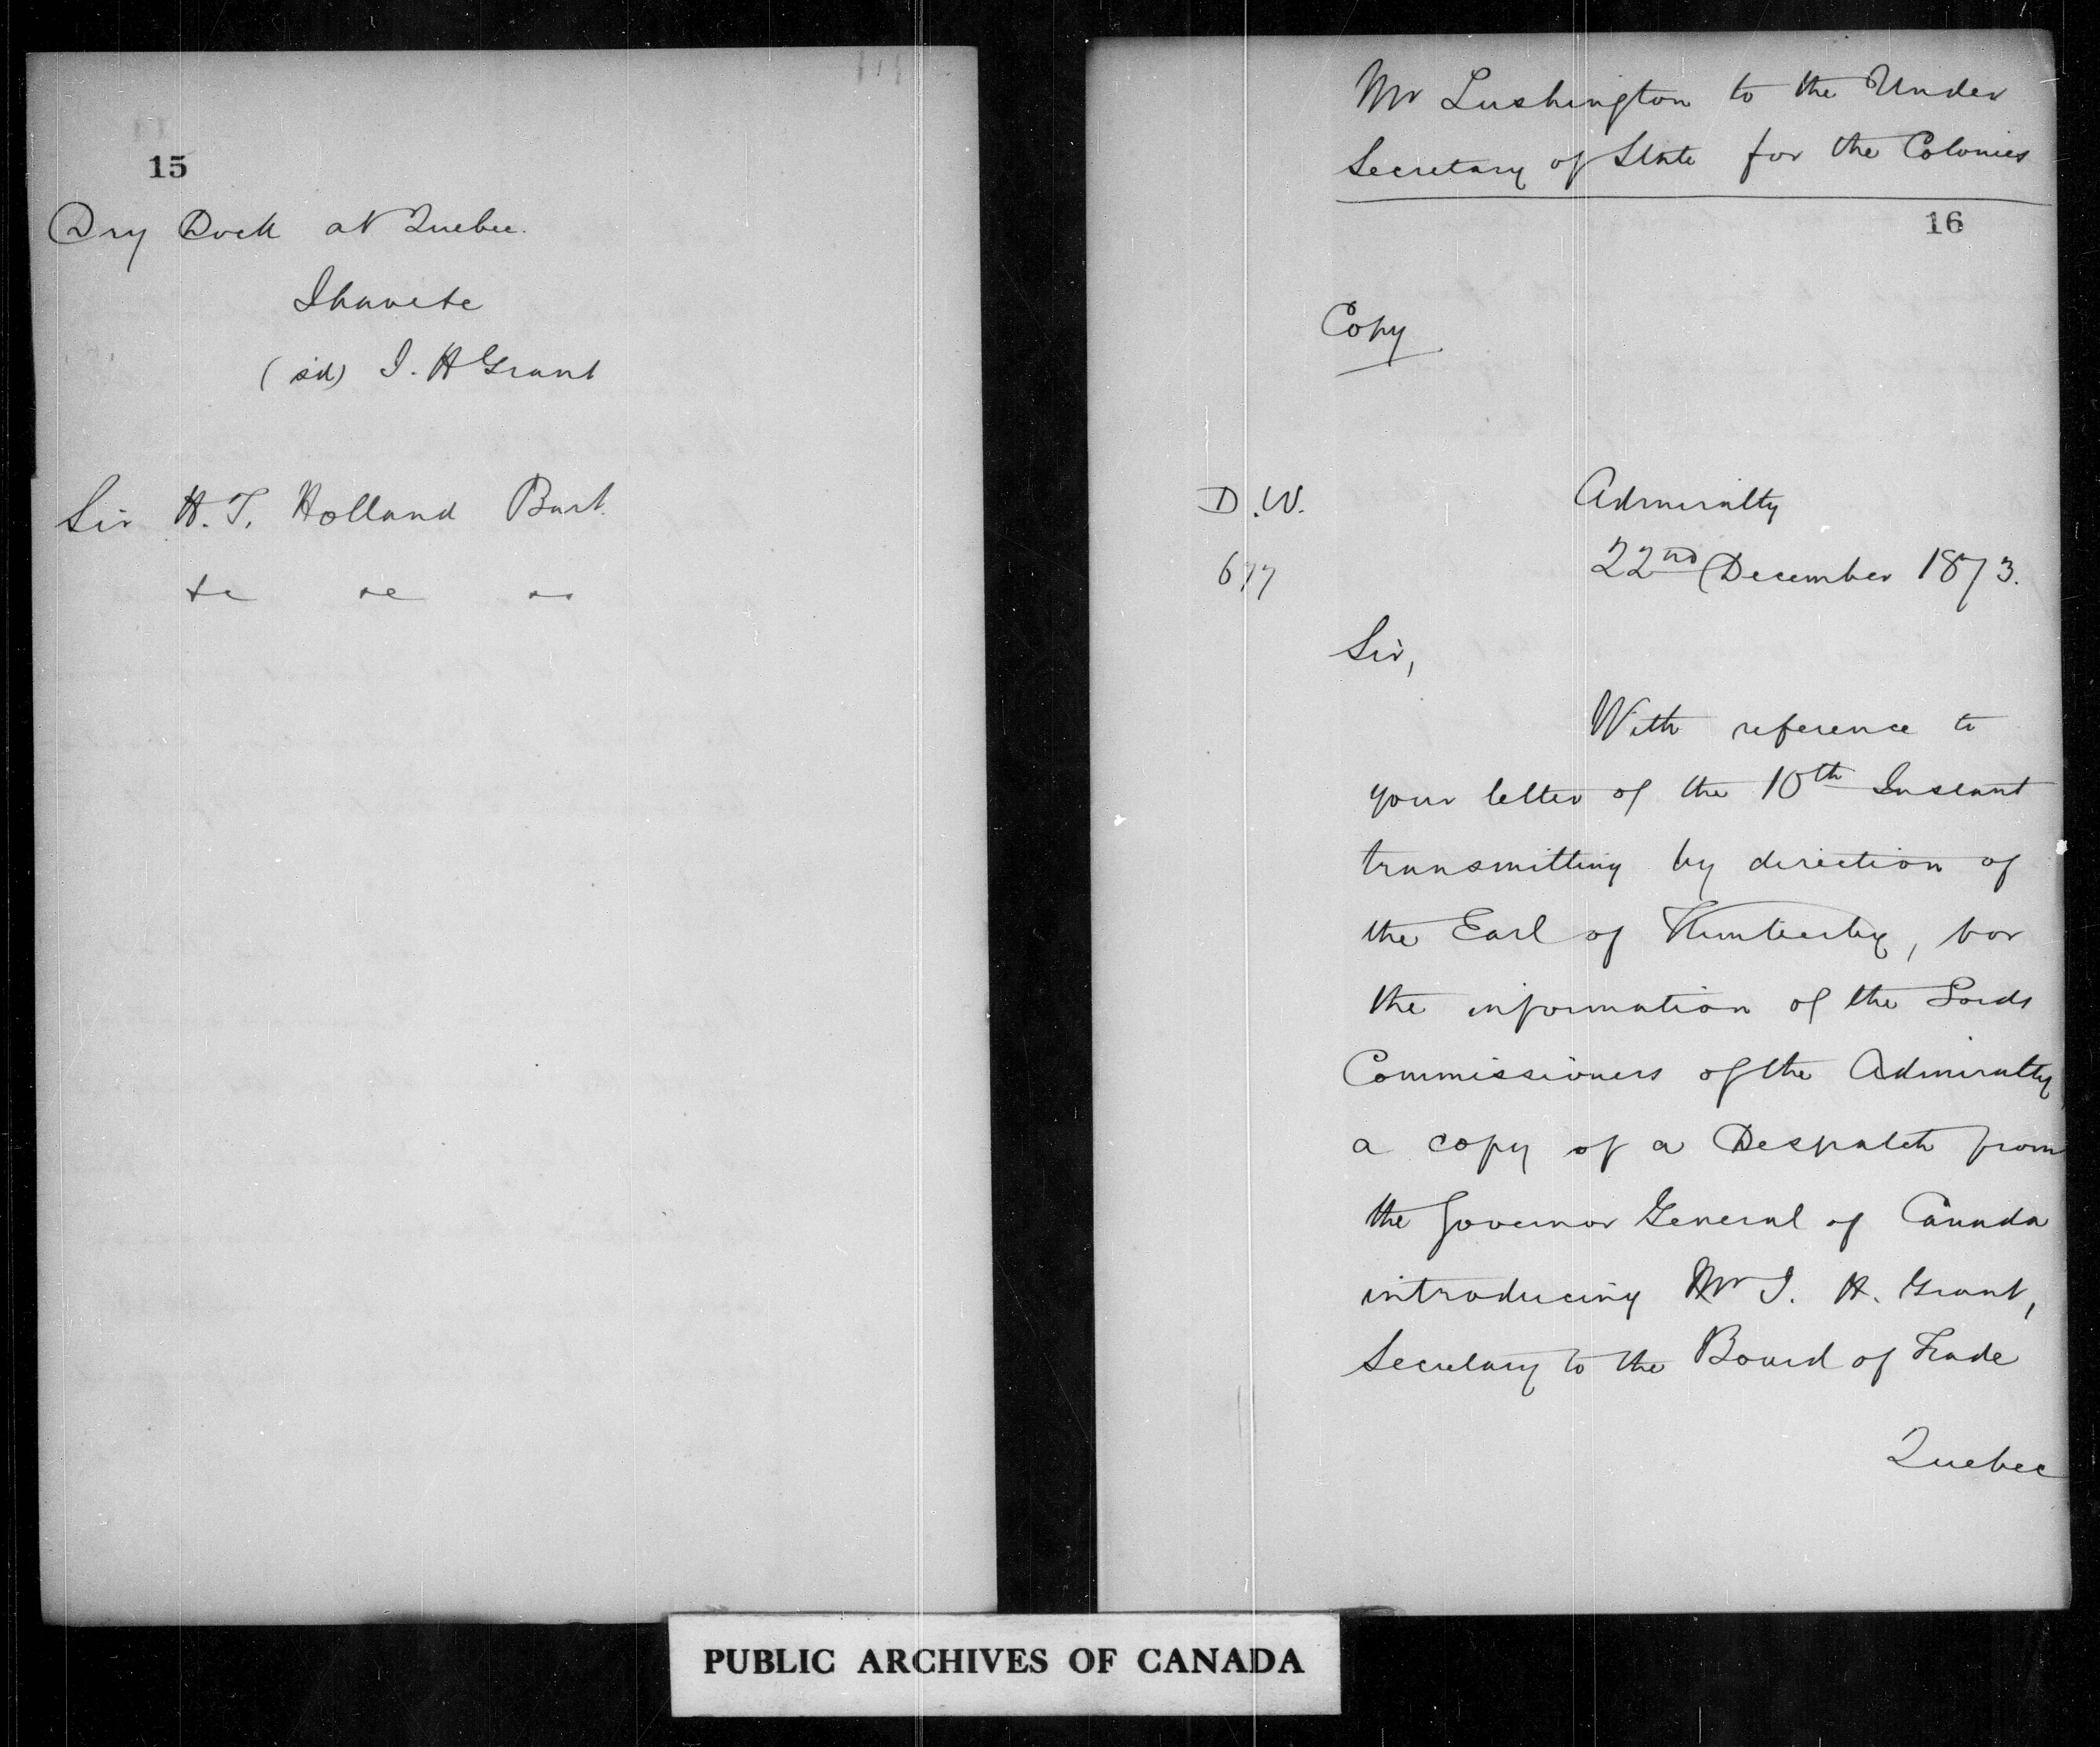 15
Dry Dock at Quebec.
I have &c
(sd) I. H Grant
Sir H. T. Holland Bart.
&c &c &c
Mr Lushington to the Under
Secretary of State for the Colonies
16
Copy
D.W.
677
Admiralty
22nd December 1873.
Sir,
With reference to
your letter of the 10th Instant
transmitting by direction of
the Earl of Kimberley, for
the information of the Lords
Commissioners of the Admiralty,
a copy of a Despatch from
the Governor General of Canada
introducing Mr I. H. Grant,
Secretary to the Board of Trade
Quebec
PUBLIC ARCHIVES OF CANADA